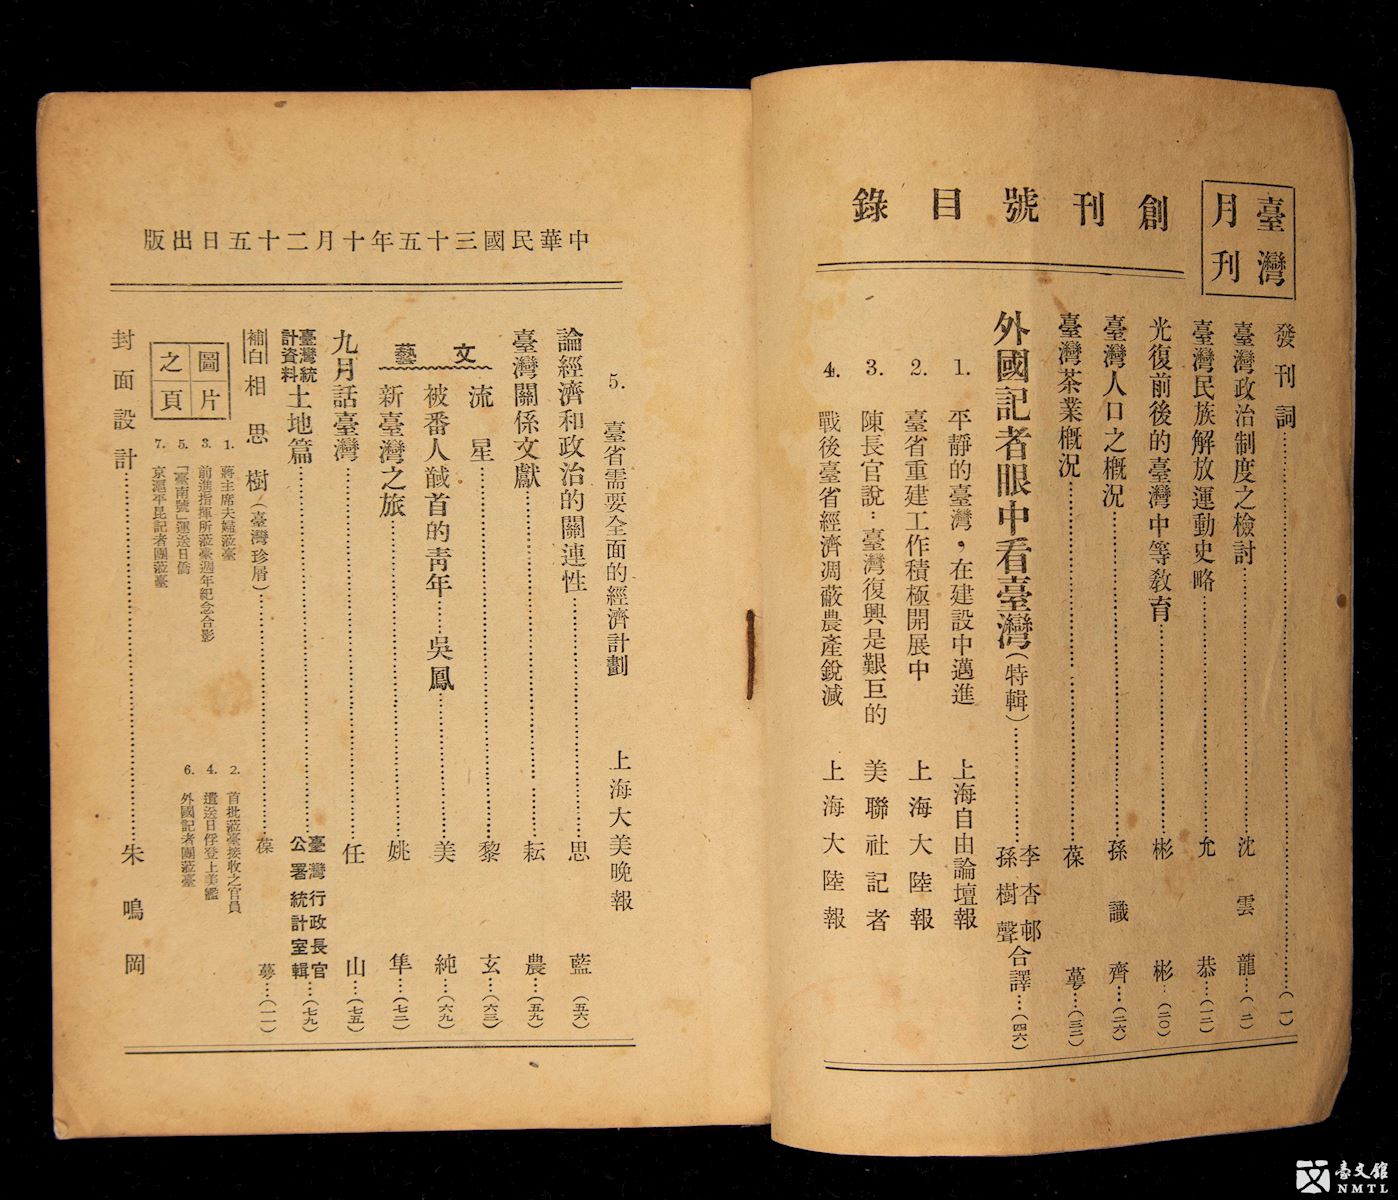 臺灣月刊
創刊號目錄
發刊詞……(一)
臺灣政治制度之檢討……沈雲龍…(二)
臺灣民族解放運動史略……允恭…(一二)
光復前後的臺灣中等教育……彬彬…(二〇)
臺灣人口之概況……孫識齊…(二六)
臺灣茶業概況……葆蕚…(三二)
外國記者眼中看臺灣(特輯)……李杏邨 孫樹聲合譯…(四六)
1. 平靜的臺灣,在建設中邁進 上海自由論壇報
2. 臺省重建工作積極開展中 上海大陸報
3. 陳長官說:臺灣復興是艱巨的 美聯社記者
4. 戰後臺省經濟凋蔽農產銳減 上海大陸報
中華民國三十五年十月二十五日出版
5. 臺省需要全面的經濟計劃 上海大美晚報
論經濟和政治的關連性……思藍(五六)
臺灣關係文獻……耘農…(五九)
文藝
流星……黎玄…(六三)
被番人馘首的青年…吳鳳……美純…(六九)
新臺灣之旅……姚隼…(七二)
九月話臺灣……任山…(七五)
臺灣統計資料 土地篇……臺灣行政長官公署統計室輯…(七九)
補白 相思樹(臺灣珍屑)……葆蕚…(一一)
圖片之頁
1. 蔣主席夫婦蒞臺
2. 首批蒞臺接收之官員
3. 前進指揮所蒞臺週年紀念合影
4. 遣送日俘登上美艦
5. 「臺南號」運送日僑
6. 外國記者團蒞臺
7. 京滬平昆記者團蒞臺
封面設計……朱鳴岡
臺文館
NMTL